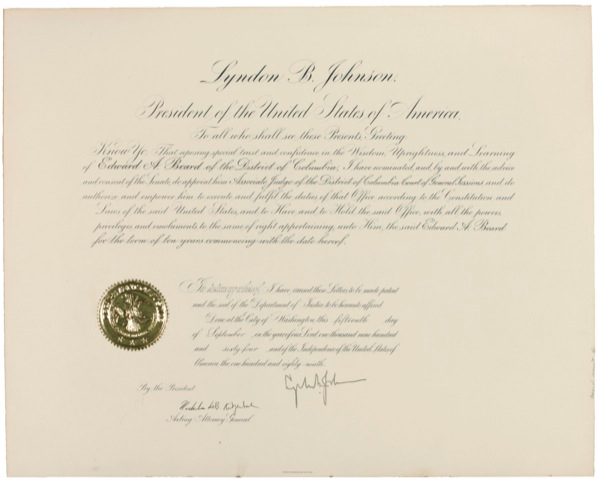 Lyndon B. Johnson,
President of the United States of America,
To all who shall see these Presents, Greeting:
Know Ye, That reposing special trust and confidence in the Wisdom, Uprightness, and Learning
of Edward A. Beard of the District of Columbia, I have nominated, and, by and with the advice
and consent of the Senate, do appoint him Associate Judge of the District of Columbia Court of General Sessions and do
authorize and empower him to execute and fulfil the duties of that Office according to the Constitution and
Laws of the said United States, and to Have and to Hold the said Office, with all the powers,
privileges, and emoluments to the same of right appertaining, unto Him, the said Edward A. Beard
for the term of ten years commencing with the date hereof.
In testimony whereof, I have caused these Letters to be made patent
and the seal of the Department of Justice to be hereunto affixed.
Done at the City of Washington this fifteenth day
of September, in the year of our Lord one thousand nine hundred
and sixty-four, and of the Independence of the United States of
America the one hundred and eighty-ninth.
By the President:
Acting Attorney General